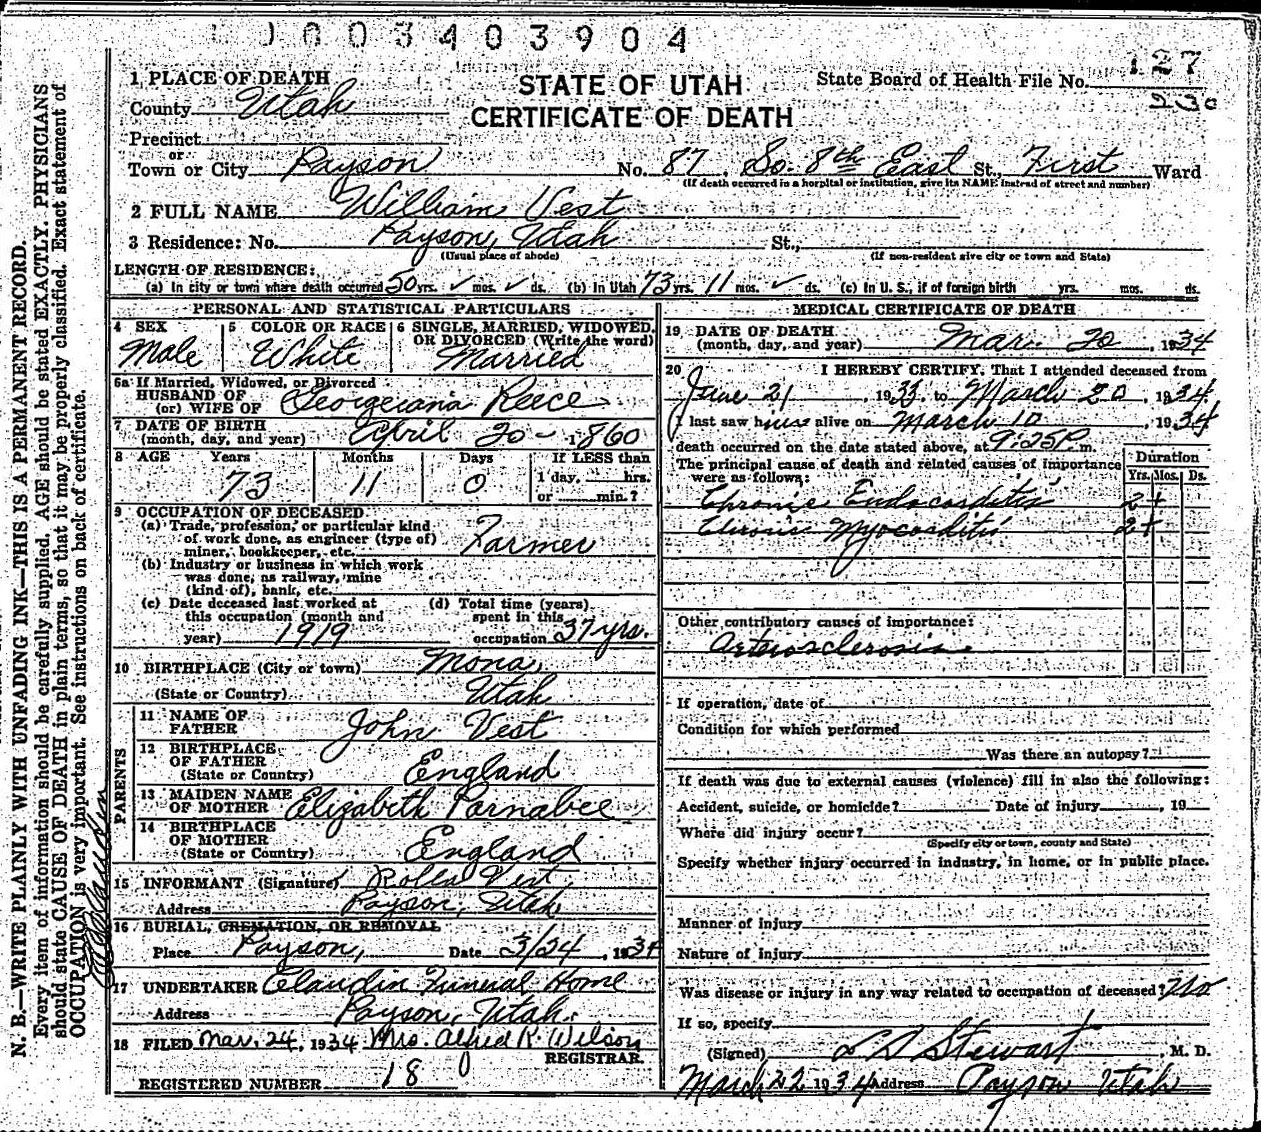 0003403904
1 PLACE OF DEATH
STATE OF UTAH
State Board of Health File No. 127
County Utah
CERTIFICATE OF DEATH
230
Precinct
or
Town or City Payson No. 87, So. 8th East St., First Ward
(If death occurred in a hospital or institution, give its NAME instead of street and number)
2 FULL NAME William Vest
3 Residence: No. Payson, Utah St.,
(Usual place of abode) (If non-resident give city or town and State)
LENGTH OF RESIDENCE:
(a) In city or town where death occurred 50 yrs. ✓ mos. ✓ ds. (b) In Utah 73 yrs. 11 mos. ✓ ds. (c) In U. S., if of foreign birth yrs. mos. ds.
PERSONAL AND STATISTICAL PARTICULARS
4 SEX Male
5 COLOR OR RACE White
6 SINGLE, MARRIED, WIDOWED, OR DIVORCED (Write the word)
Married
6a If Married, Widowed, or Divorced
HUSBAND OF
(or) WIFE OF Georgeiana Reece
7 DATE OF BIRTH
(month, day, and year) April 20 - 1860
8 AGE Years Months Days If LESS than
73 11 0 1 day, hrs.
or min.?
9 OCCUPATION OF DECEASED
(a) Trade, profession, or particular kind
of work done, as engineer (type of)
miner, bookkeeper, etc. Farmer
(b) Industry or business in which work
was done, as railway, mine
(kind of), bank, etc.
(c) Date deceased last worked at
this occupation (month and
year) 1919
(d) Total time (years)
spent in this
occupation 37 yrs.
10 BIRTHPLACE (City or town) Mona,
(State or Country) Utah
PARENTS
11 NAME OF
FATHER John Vest
12 BIRTHPLACE
OF FATHER
(State or Country) England
13 MAIDEN NAME
OF MOTHER Elizabeth Parnabee
14 BIRTHPLACE
OF MOTHER
(State or Country) England
15 INFORMANT (Signature) Rolla Vest
Address Payson, Utah
16 BURIAL, CREMATION, OR REMOVAL
Place Payson, Date 3/24, 1934
17 UNDERTAKER Claudin Funeral Home
Address Payson, Utah.
18 FILED Mar. 24, 1934 Mrs. Alfred R. Wilson
REGISTRAR.
REGISTERED NUMBER 18
MEDICAL CERTIFICATE OF DEATH
19 DATE OF DEATH
(month, day, and year) Mar. 20, 1934
20 I HEREBY CERTIFY, That I attended deceased from
June 21, 1933, to March 20, 1934.
I last saw h alive on March 10, 1934
death occurred on the date stated above, at 9:25P.m.
The principal cause of death and related causes of importance
were as follows:
Duration
Yrs. Mos. Ds.
Chronic Endocarditis 2 +
Chronic Myocarditis 2 +
Other contributory causes of importance:
Arteriosclerosis
If operation, date of
Condition for which performed
Was there an autopsy?
If death was due to external causes (violence) fill in also the following:
Accident, suicide, or homicide? Date of injury , 19
Where did injury occur?
(Specify city or town, county and State)
Specify whether injury occurred in industry, in home, or in public place.
Manner of injury
Nature of injury
Was disease or injury in any way related to occupation of deceased? No
If so, specify
(Signed) L D Stewart, M. D.
March 22 1934 Address Payson Utah
N. B.—WRITE PLAINLY WITH UNFADING INK—THIS IS A PERMANENT RECORD.
Every item of information should be carefully supplied. AGE should be stated EXACTLY. PHYSICIANS
should state CAUSE OF DEATH in plain terms, so that it may be properly classified. Exact statement of
OCCUPATION is very important. See instructions on back of certificate.